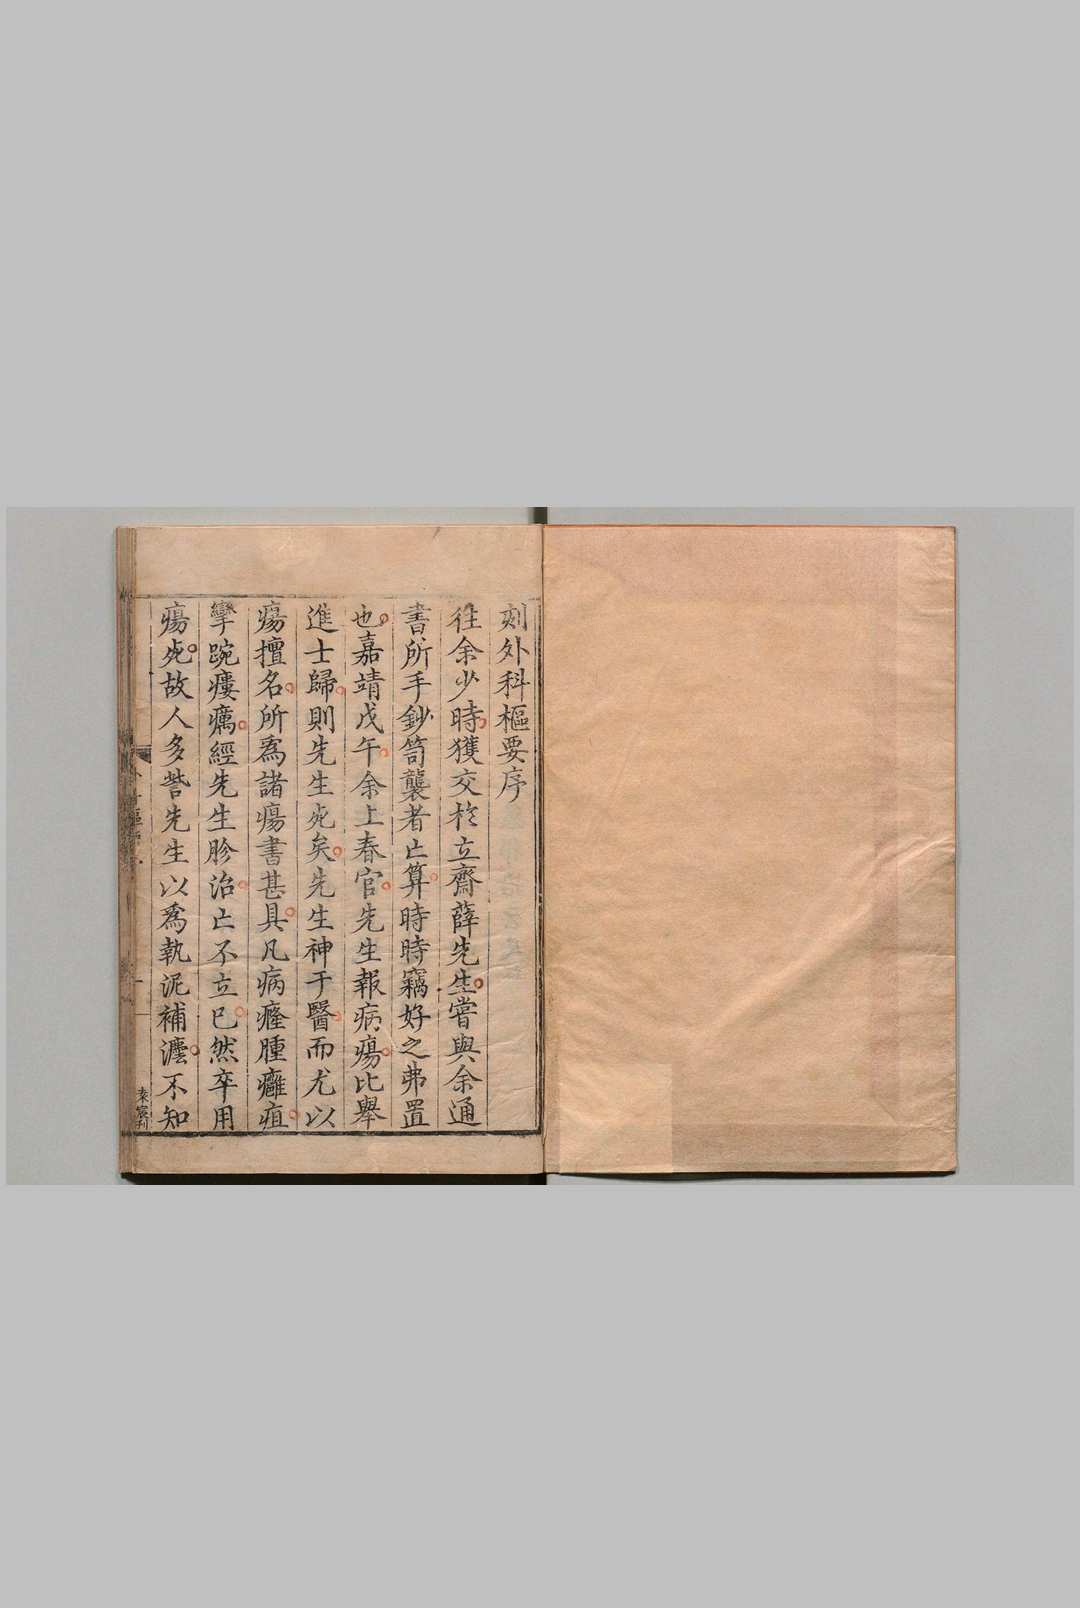 刻外科樞要序
徃余少時獲交於立齋薛先生嘗與余通
書所手鈔笥襲者亡算時時竊好之弗置
也嘉靖戊午余上春官先生報病瘍比舉
進士歸則先生死矣先生神于醫而尤以
瘍擅名所爲諸瘍書甚具凡病癃腫癰疽
攣踠瘻癘經先生胗治亡不立已然卒用
瘍死故人多訾先生以爲執泥補瀍不知